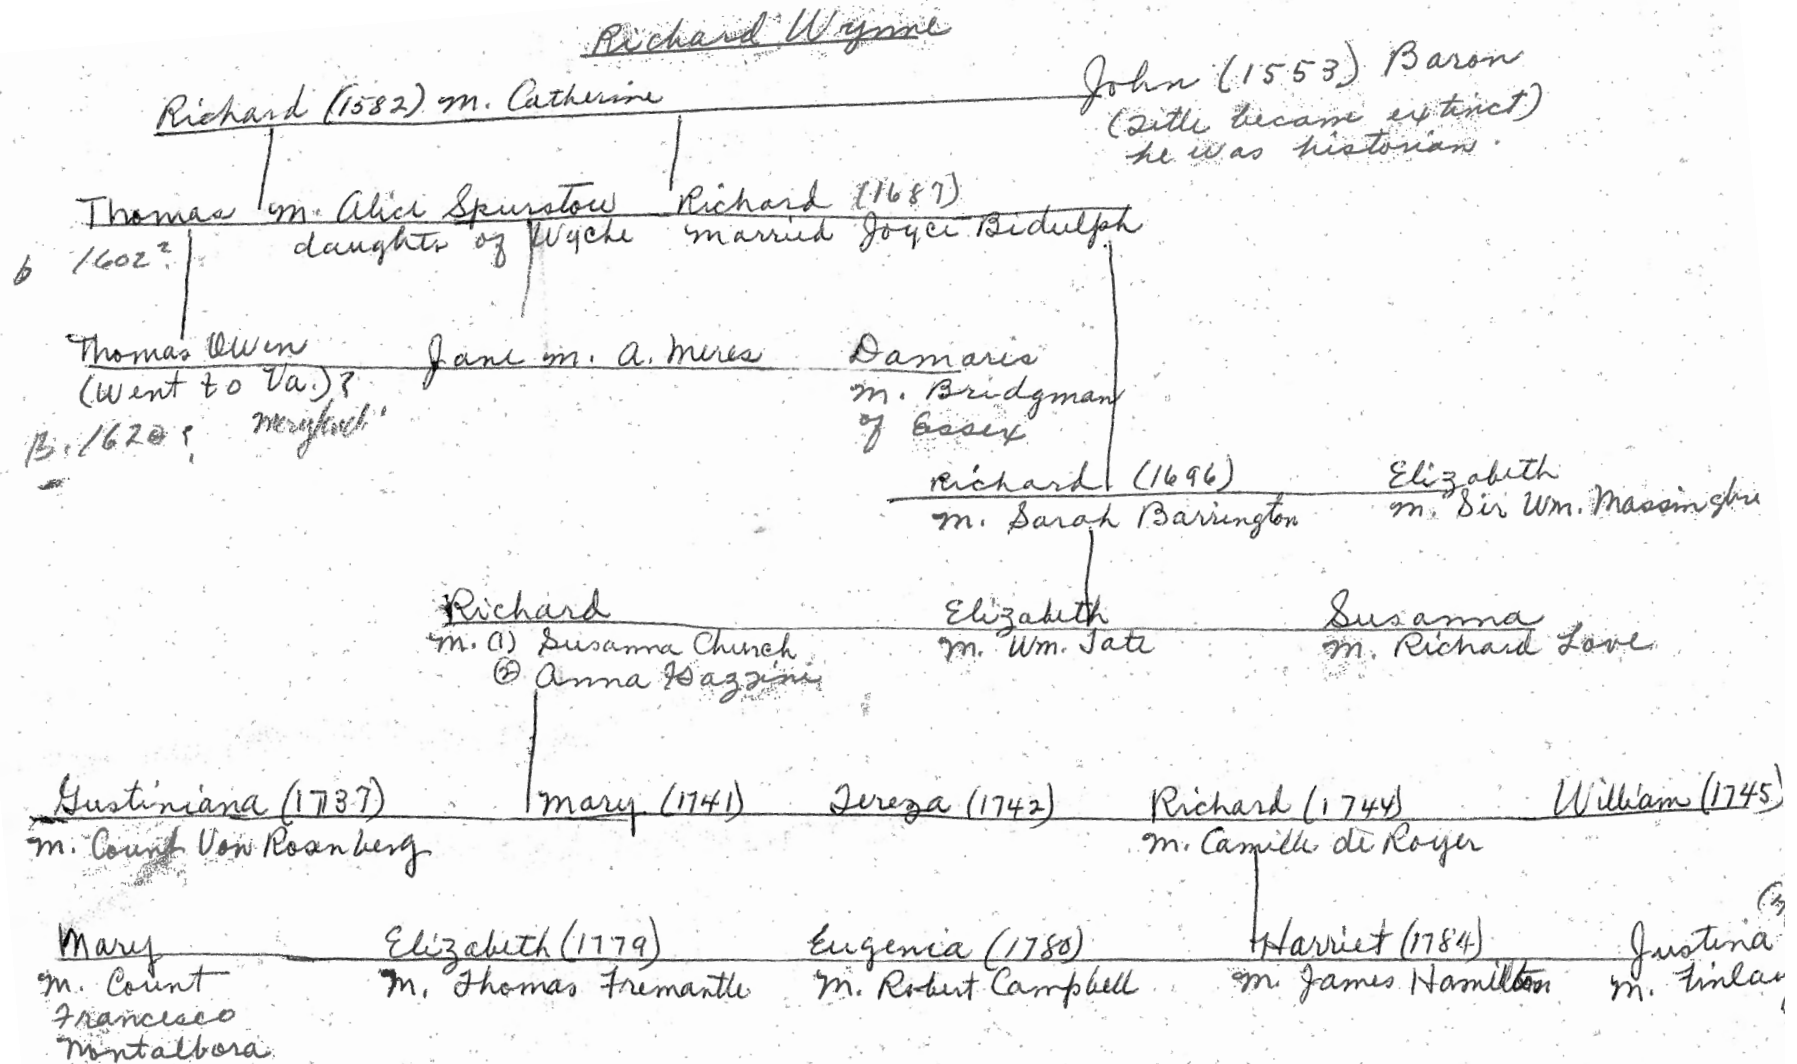 Richard Wynne
Richard (1582) m. Catherine
John (1553) Baron
(Title became extinct)
he was historian.
Thomas m. Alice Spurstow
daughter of Wyche
b 1602?
Richard (1687)
married Joyce Bidulph
Thomas Owen
(Went to Va.)?
B. 1620?
Jane m. A. Meres
Damaris
m. Bridgman
of Essex
Richard (1696)
m. Sarah Barrington
Elizabeth
m. Sir Wm.
Richard
m. (1) Susanna Church
(2) Anna Gazzini
Elizabeth
m. Wm. Tate
Susanna
m. Richard Love
Gustiniana (1737)
m. Count Von Rosenberg
Mary (1741)
Tereza (1742)
Richard (1744)
m. Camille de Royer
William (1745)
Mary
m. Count
Francesco
Montalbora
Elizabeth (1779)
m. Thomas Fremantle
Eugenia (1780)
m. Robert Campbell
Harriet (1784)
m. James Hamilton
Justina
m. Finlay